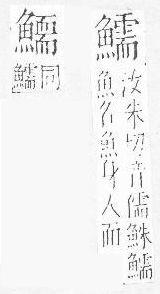 鱬
汝朱切音儒鮢鱬
魚名魚身人面
同
鱬